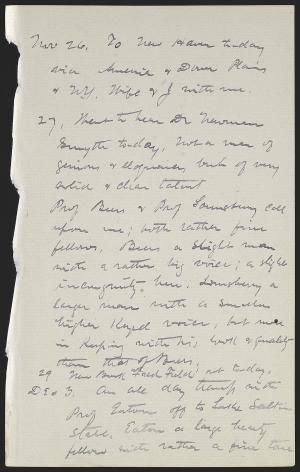 Nov 26. To New Haven to-day
via Amenia & Dover Plains
& N.Y. Wife & J with me.
27, Went to hear Dr Newman
Smyth to-day, Not a man of
genius or eloquence, but of very
solid & clear talent
Prof Beers & Prof Lounsbury call
upon me; both rather fine
fellows, Beers a slight man
with a rather big voice; a slight
incongruity here. Lounsbury a
larger man with a smaller
higher keyed voice, but more
in keeping with his work & quality
than that of Beers;
29 New Foot Ball Field, to-day,
Dec 3. An all day tramp with
Prof Eatons off to Lake Saltin
Stall, Eaton a large hearty
fellow with rather a fine face